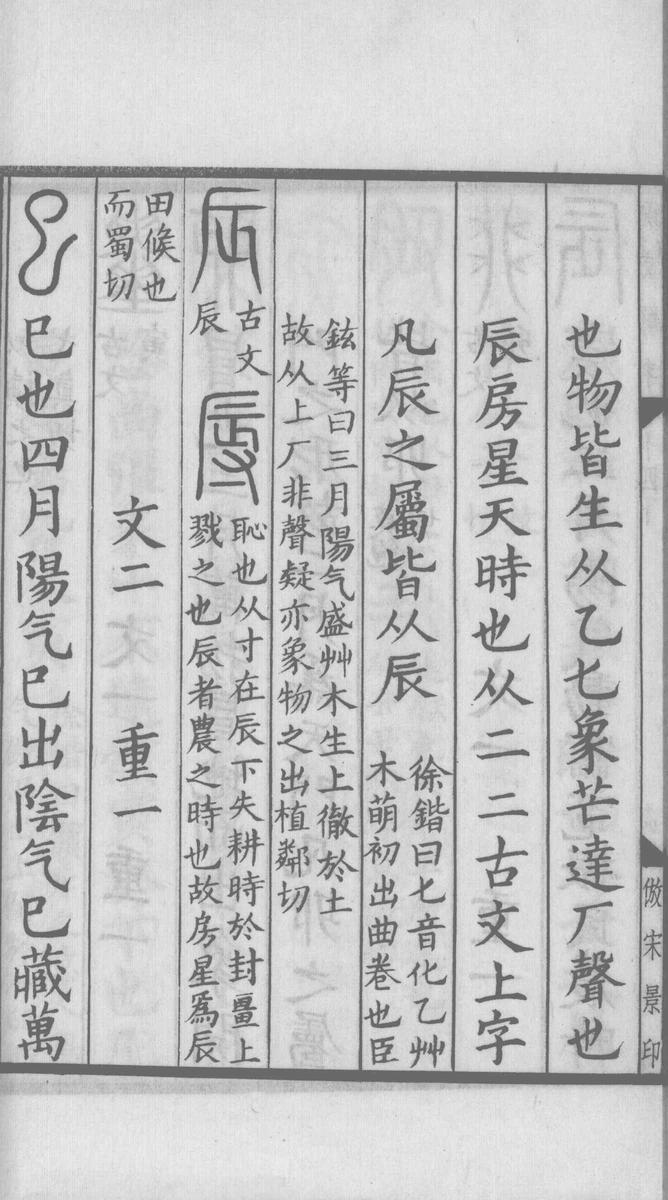 倣宋景印
也物皆生从乙匕象芒達厂聲也
辰房星天時也从二二古文上字
凡辰之屬皆从辰
徐鍇曰匕音化乙艸
木萌初出曲卷也臣
鉉等曰三月陽气盛艸木生上徹於土
故从上厂非聲疑亦象物之出植鄰切
辰 古文
辰
辱 恥也从寸在辰下失耕時於封畺上
戮之也辰者農之時也故房星爲辰
田候也
而蜀切
文二 重一
巳 巳也四月陽气巳出陰气巳藏萬